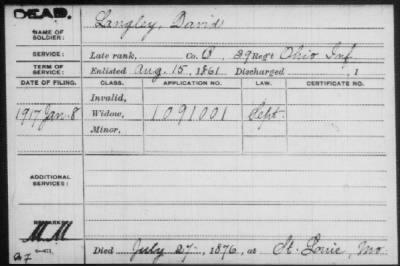 DEAD.
NAME OF SOLDIER: Langley, David
SERVICE: Late rank, Co. B, 29 Reg't Ohio Inf.
TERM OF SERVICE: Enlisted Aug. 15, 1861 Discharged , 1
DATE OF FILING. CLASS. APPLICATION NO. LAW. CERTIFICATE NO.
Invalid,
1917 Jan. 8 Widow, 1091001 Sept.
Minor,
ADDITIONAL SERVICES:
REMARKS:
MM
Died July 27, 1876, at St. Louis, Mo